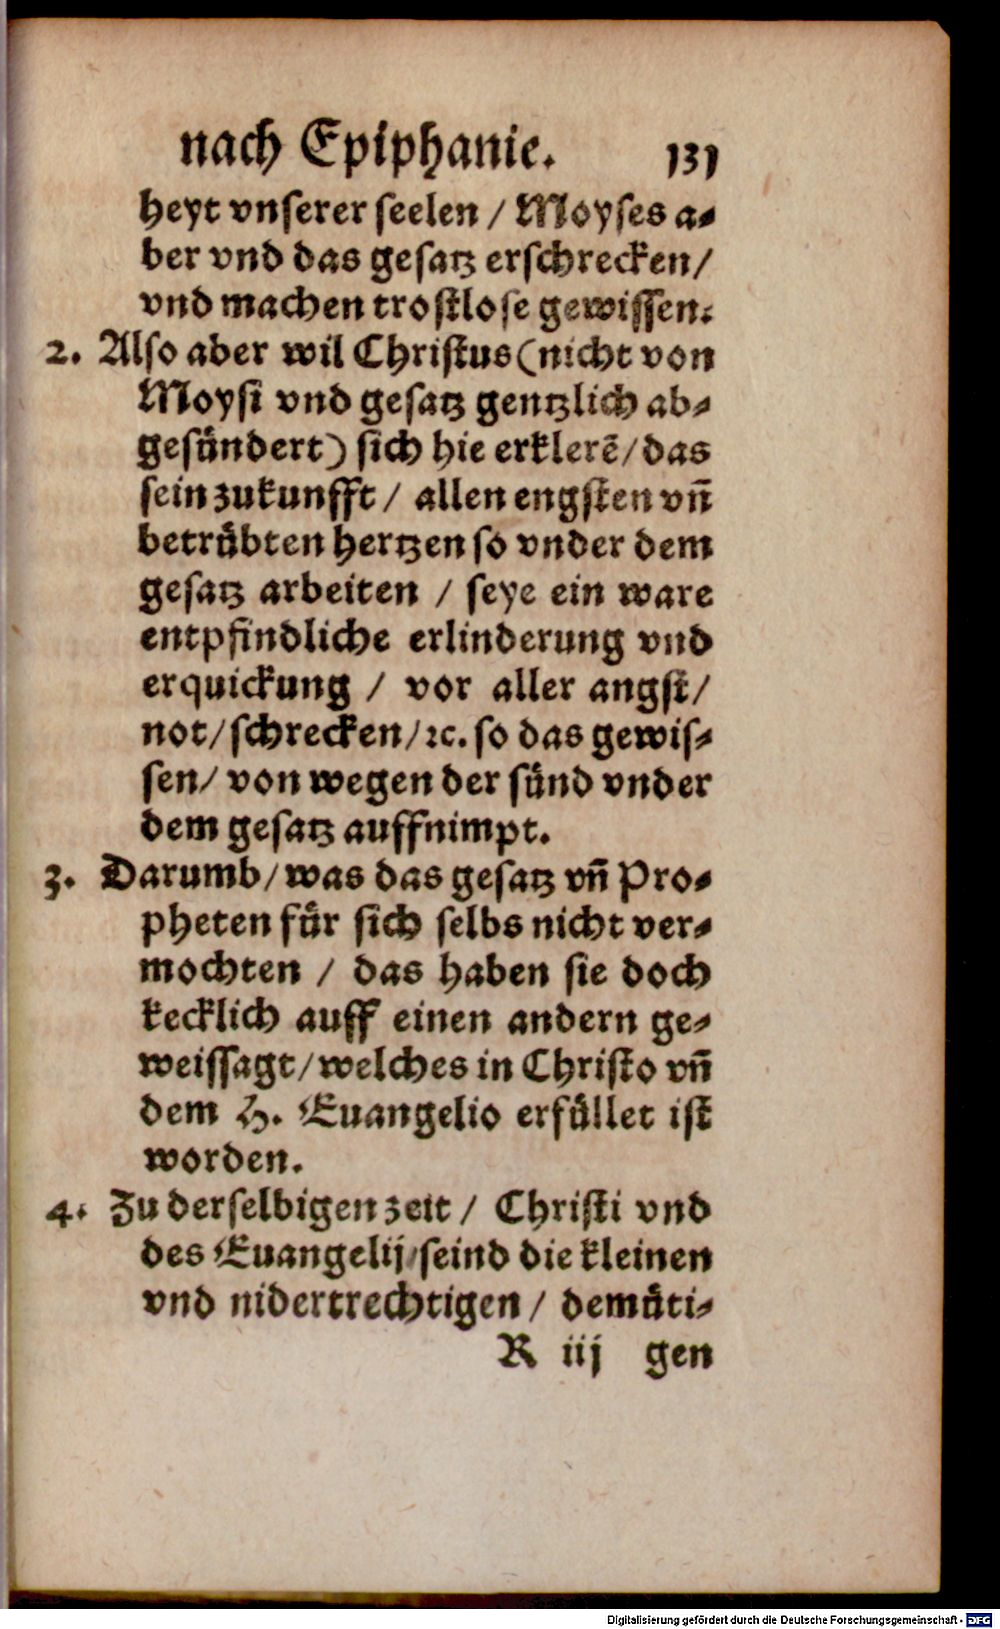 nach Epiphanie. 131
heyt vnserer seelen / Moyses a⸗
ber vnd das gesatz erschrecken/
vnd machen trostlose gewissen.
2. Also aber wil Christus (nicht von
Moysi vnd gesatz gentzlich ab⸗
gesündert) sich hie erklerē/das
sein zukunfft / allen engsten vñ
betrübten hertzen so vnder dem
gesatz arbeiten / seye ein ware
entpfindliche erlinderung vnd
erquickung / vor aller angst/
not/schrecken/ꝛc. so das gewis⸗
sen/ von wegen der sünd vnder
dem gesatz auffnimpt.
3. Darumb/was das gesatz vñ Pro⸗
pheten für sich selbs nicht ver⸗
mochten / das haben sie doch
kecklich auff einen andern ge⸗
weissagt/welches in Christo vñ
dem H. Euangelio erfüllet ist
worden.
4. Zu derselbigen zeit / Christi vnd
des Euangelij/seind die kleinen
vnd nidertrechtigen / demüti⸗
R iij gen
Digitalisierung gefördert durch die Deutsche Forschungsgemeinschaft - DFG